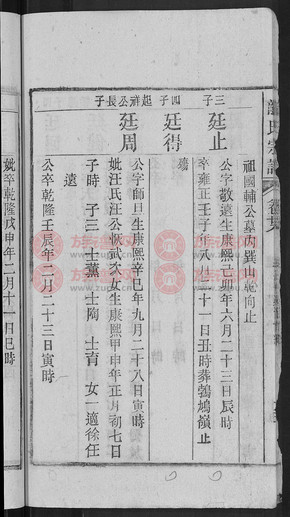 祖國輔公墓內巽山乾向止
三子
廷止
公字敬遠生康熙己卯年六月二十三日辰時
卒雍正壬子年八月二十一日丑時葬鵓鳩嶺止
四子
廷得
殤
起龍公長子
廷周
公字師旦生康熙辛巳年九月二十八日寅時
妣汪氏汪公恢武次女生康熙甲申年正月初七日
子時 子三 士薰 士陶 士育 女一適徐任
遠
公卒乾隆壬辰年二月二十三日寅時
妣卒乾隆戊申年二月十一日巳時